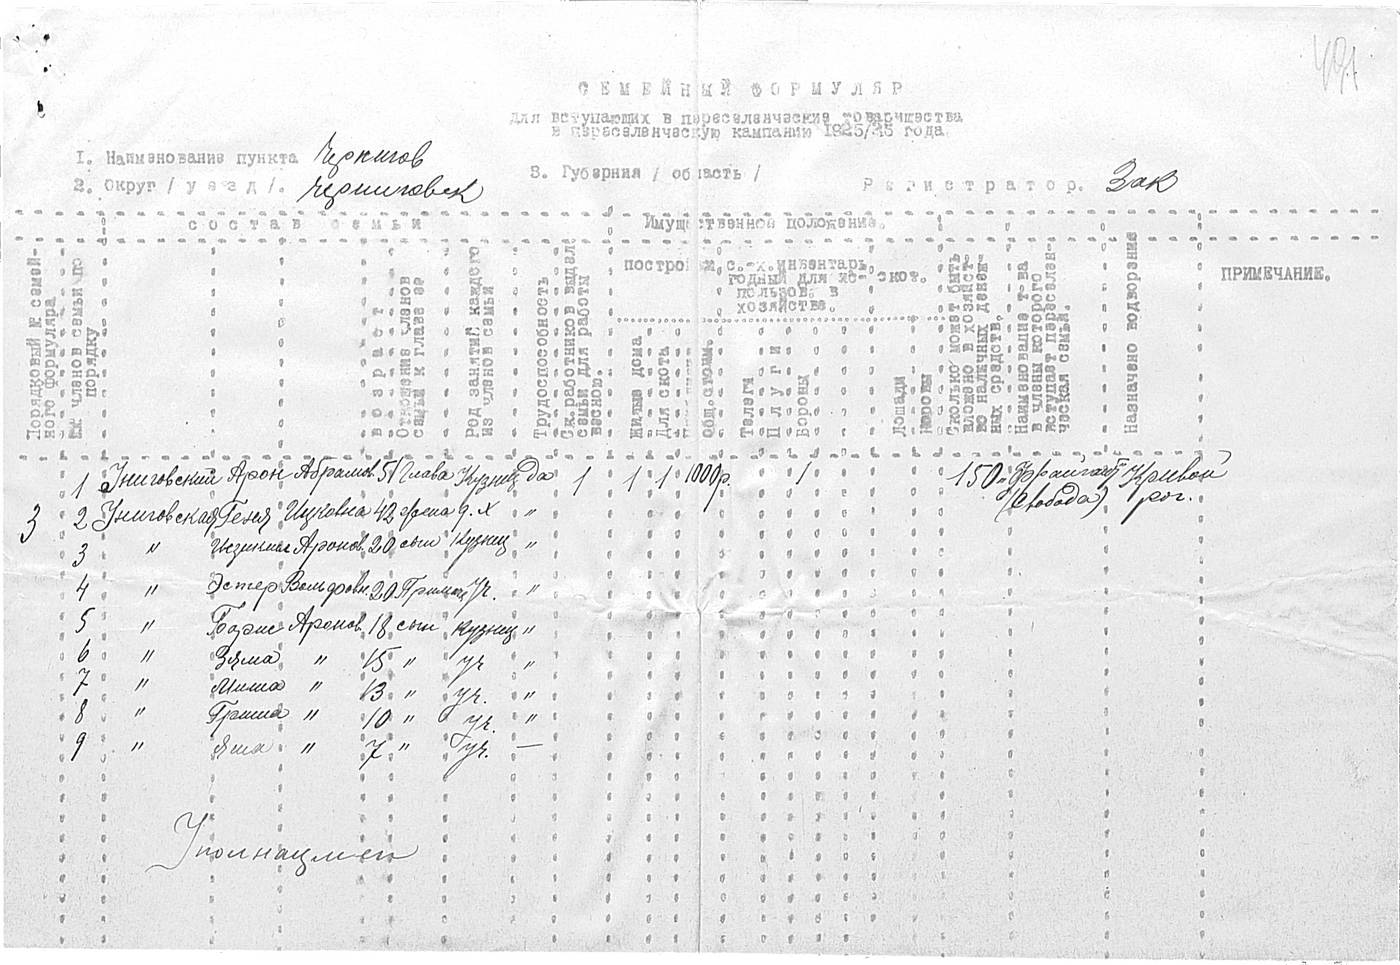 491
СЕМЕЙНЫЙ ФОРМУЛЯР
для вступающих в переселенческие товарищества
в переселенческую кампанию 1925/26 года.
1. Наименование пункта Чернигов
2. Округ / уезд /. Черниговск
3. Губерния / область /
Регистратор. Зак
состав семьи
Имущественной положение.
Порядковый № семейного формуляра
№№ членов семьи по порядку
возраст
Отношение членов семьи к главе ее
Род занятий каждого из членов семьи
Трудоспособность
Ск. работников выделе семьи для работы весною.
постройки
с.-х. инвентарь годный для использов. в хозяйстве.
скот.
Жилые дома
Для скота
Общ. стоим.
Телеги
Плуги
Бороны
Лошади
Коровы
Сколько может быть вложено в хозяйство наличных денежных средств.
Наименование т-ва в члены которого вступает переселенческая семья.
Назначено водворение
ПРИМЕЧАНИЕ.
1 Униговский Арон Абрамов. 51 Глава Кузнец да 1 1 1 1000р. 1 150 Кривой
(Свобода) рог.
3 2 Униговская Геня Ицковна 42 жена д.х "
3 " Аронов. 20 сын Кузнец "
4 " Эстер Вольфовн 20 Уч. "
5 " Борис Аронов. 18 сын кузнец "
6 " Зяма " 15 " уч "
7 " Миша " 13 " уч. "
8 " Гриша " 10 " уч. "
9 " Яша " 7 " уч. —
Уполнацмен